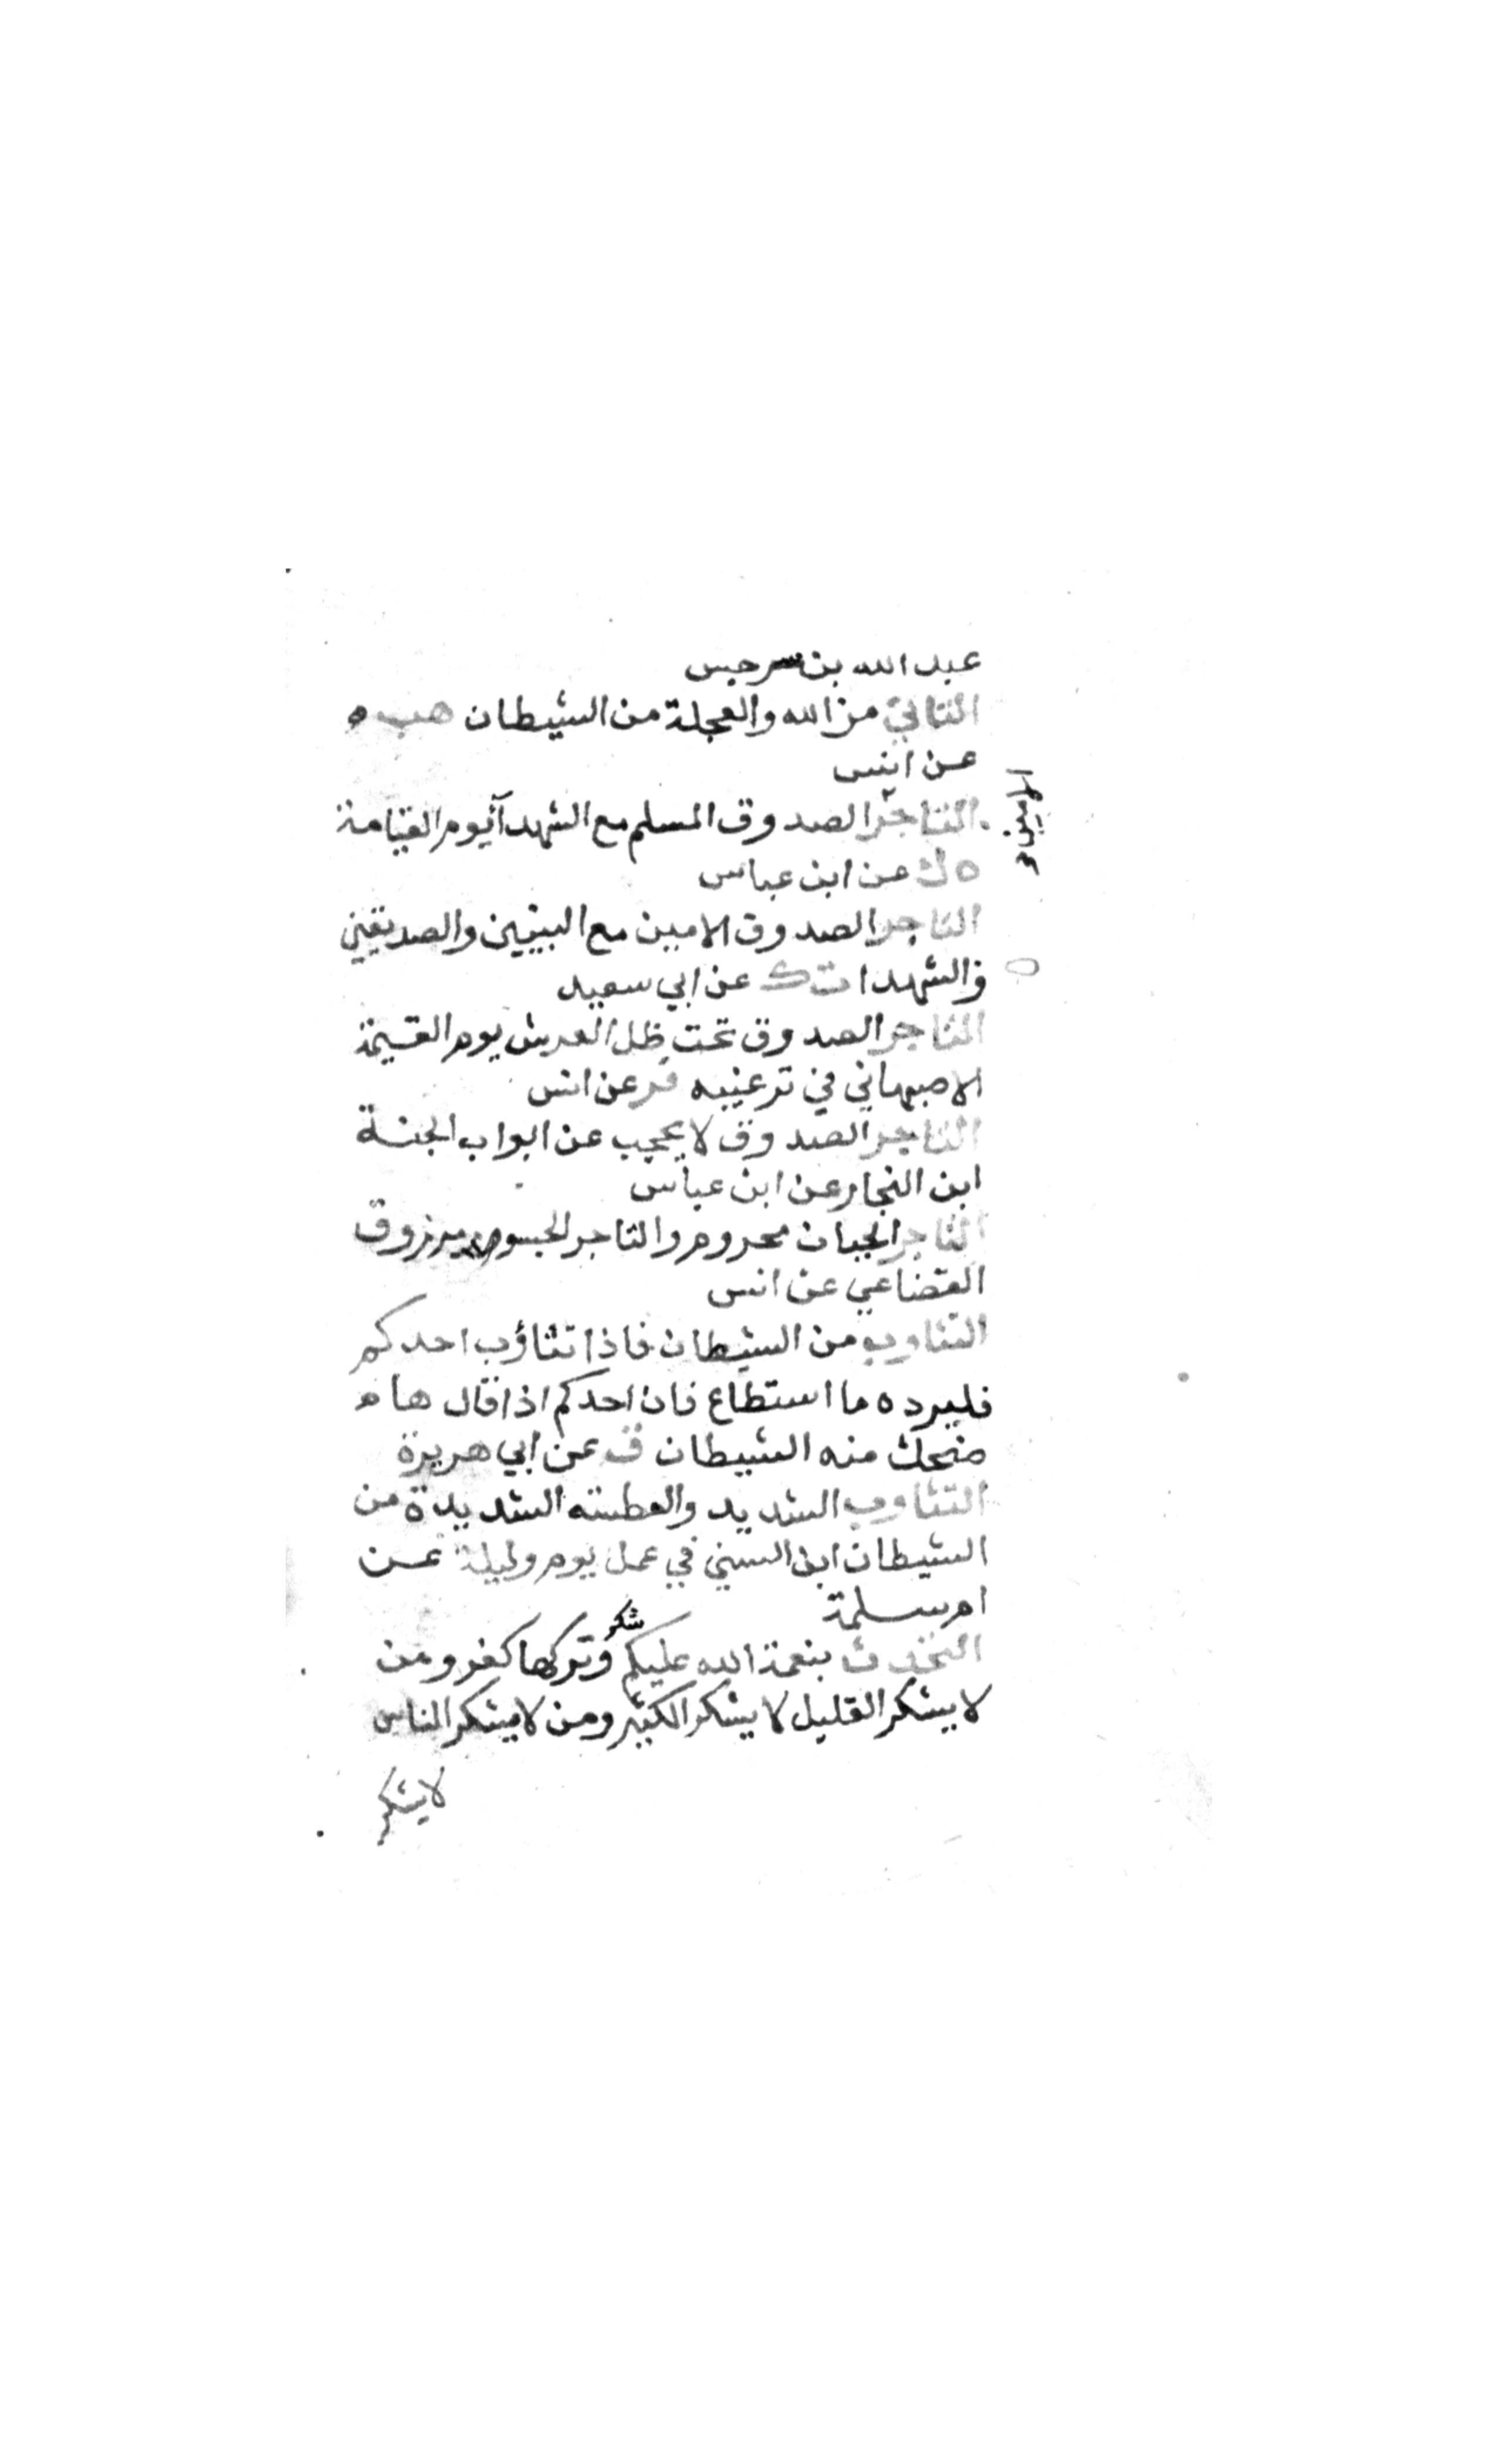 عبد الله بن سرجس
التاني من الله والعجلة من الشيطان هب ه
عن انس
التاجر الصدوق المسلم مع الشهدآ يوم القيامة
ه ك عن ابن عباس
التاجر الصدوق الامين مع النبيين والصديقين
والشهدا ت ك عن ابي سعيد
التاجر الصدوق تحت ظل العرش يوم القيمة
الاصبهاني في ترغيبه فر عن انس
التاجر الصدوق لا يحجب عن ابواب الجنة
ابن النجار عن ابن عباس
التاجر الجبان محروم والتاجر الجسور مرزوق
القضاعي عن انس
التثاوب من الشيطان فاذا تثاؤب احدكم
فليرده ما استطاع فان احدكم اذا قال هاه
ضحك منه الشيطان ق عن ابي هريرة
التثاوب الشديد والعطسة الشديدة من
الشيطان ابن السني في عمل يوم وليلة عن
ام سلمة
التحدث بنعمة الله عليكم شكر وتركها كفر ومن
لا يشكر القليل لا يشكر الكثير ومن لا يشكر الناس
لا يشكر